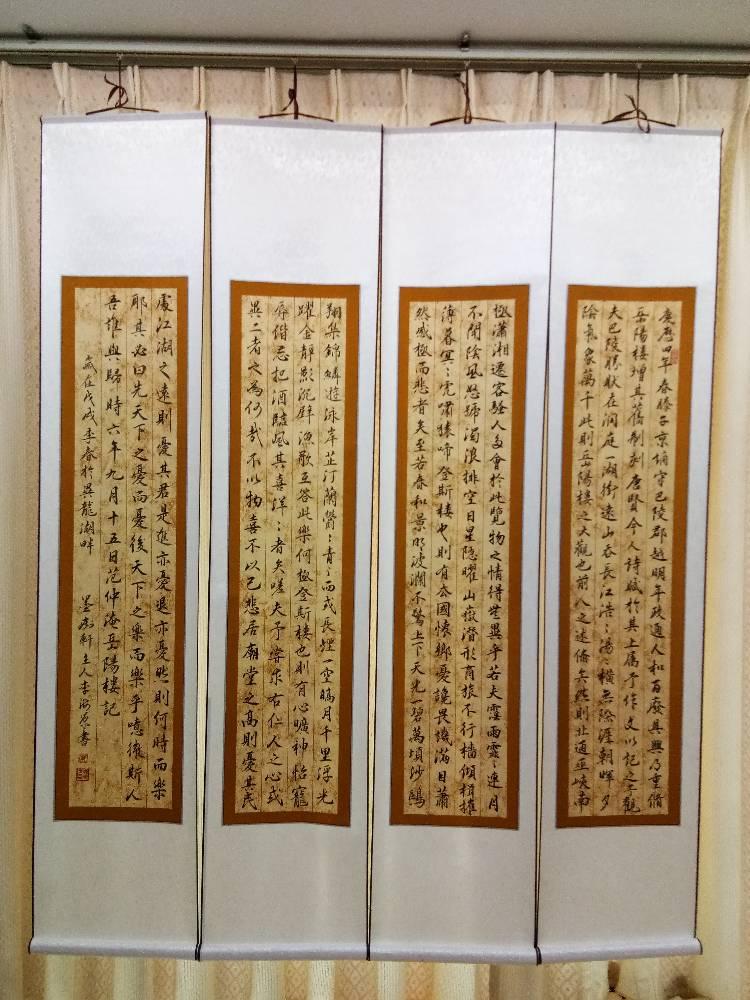 慶歷四年春滕子京謫守巴陵郡越明年政通人和百廢具興乃重脩
岳陽樓增其舊制刻唐賢今人詩賦於其上屬予作文以記之予觀
夫巴陵勝狀在洞庭一湖銜遠山吞長江浩〻湯〻橫無際涯朝暉夕
陰氣象萬千此則岳陽樓之大觀也前人之述備矣然則北通巫峽南
極瀟湘遷客騷人多會於此覽物之情得無異乎若夫霪雨霏〻連月
不開陰風怒號濁浪排空日星隱曜山嶽潛形商旅不行檣傾楫摧
薄暮冥〻虎嘯猿啼登斯樓也則有去國懷鄉憂讒畏譏滿目蕭
然感極而悲者矣至若春和景明波瀾不驚上下天光一碧萬頃沙鷗
翔集錦鱗遊泳岸芷汀蘭鬱〻青〻而或長煙一空皓月千里浮光
躍金靜影沉璧漁歌互答此樂何極登斯樓也則有心曠神怡寵
辱偕忘把酒臨風其喜洋〻者矣嗟夫予嘗求古仁人之心或
異二者之為何哉不以物喜不以己悲居廟堂之高則憂其民
處江湖之遠則憂其君是進亦憂退亦憂然則何時而樂
耶其必曰先天下之憂而憂後天下之樂而樂乎噫微斯人
吾誰與歸時六年九月十五日范仲淹岳陽樓記
歲在戊戌季春於興龍湖畔 墨軒主人李海書